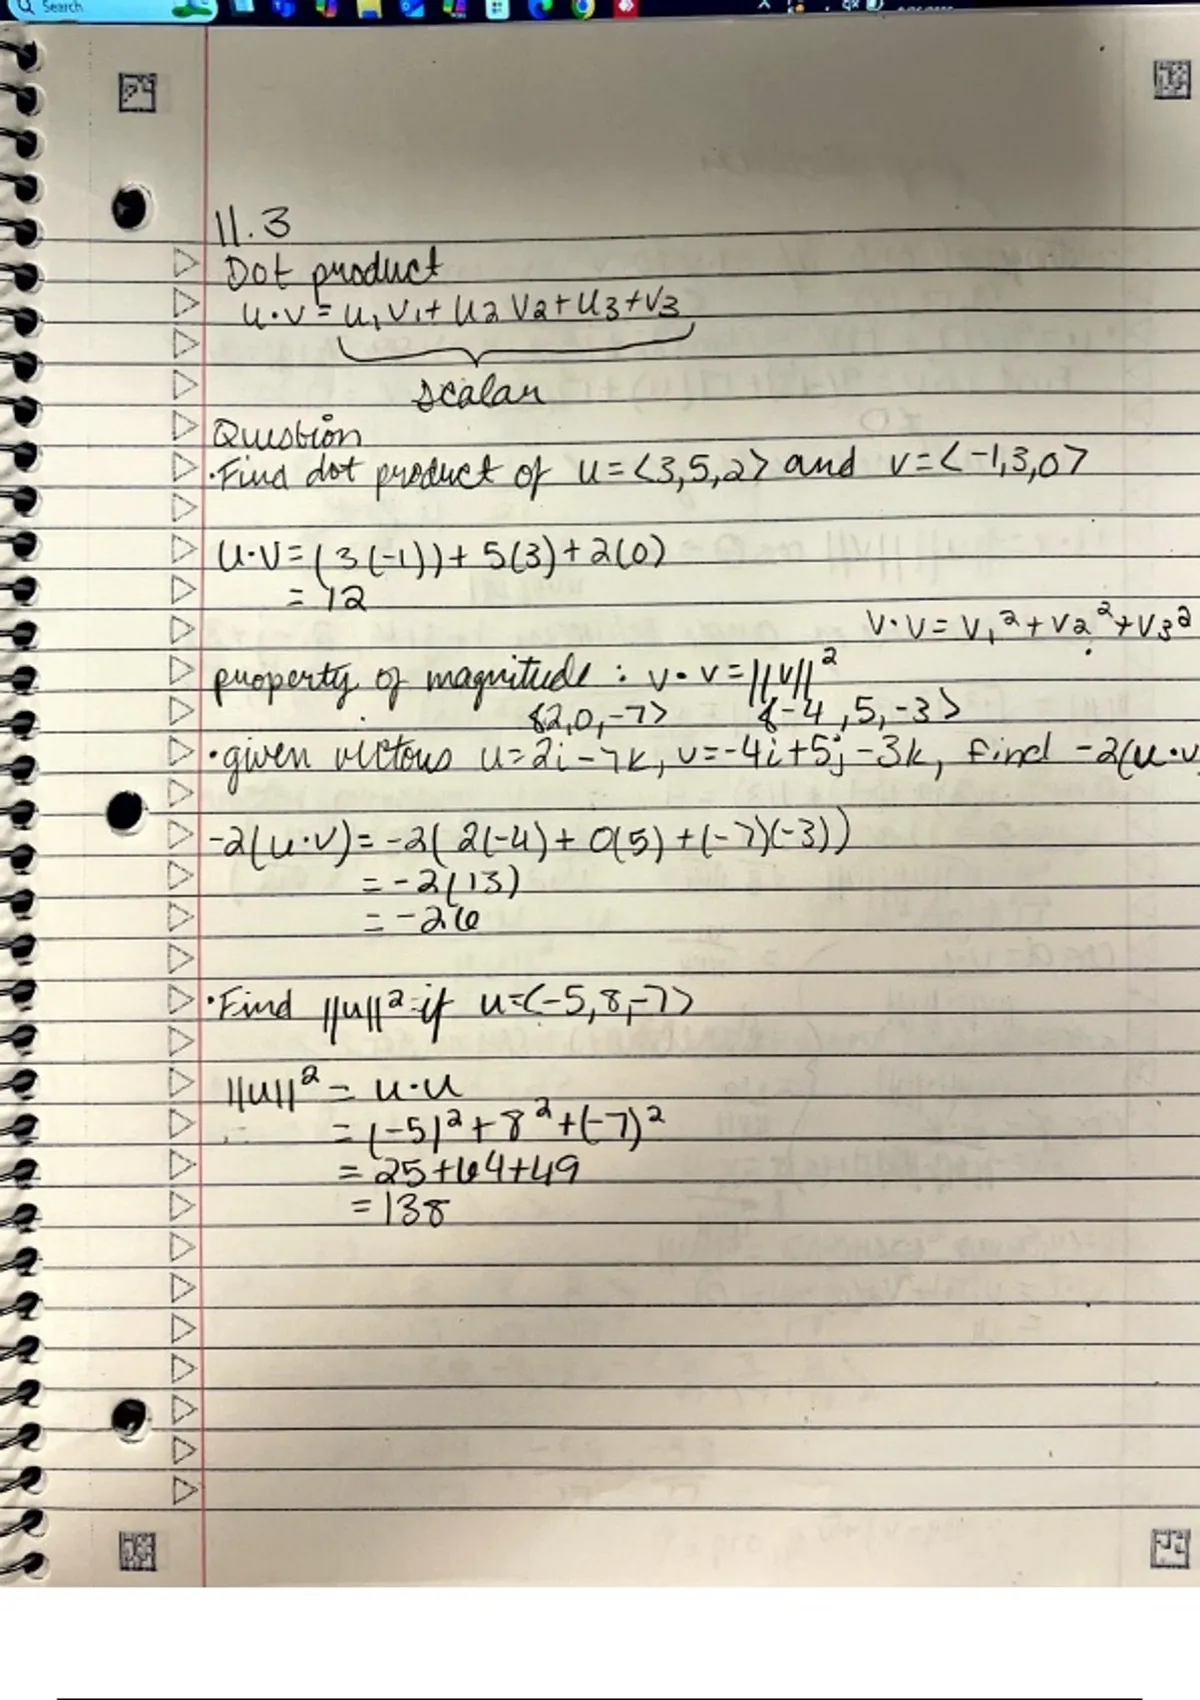 Search
11.3
Dot product
u·v = u₁v₁ + u₂v₂ + u₃+v₃
scalar
Question
·Find dot product of u=<3,5,2> and v=<-1,3,0>
u·v = (3(-1)) + 5(3) + 2(0)
= 12
v·v = v₁² + v₂² + v₃²
property of magnitude : v·v = ||v||²
<2,0,-7> <-4,5,-3>
·given vectors u=2i-7k, v=-4i+5j-3k, find -2(u·v
-2(u·v) = -2(2(-4) + 0(5) + (-7)(-3))
= -2(13)
= -26
·Find ||u||² if u=<-5,8,-7>
||u||² = u·u
= (-5)² + 8² + (-7)²
= 25+64+49
= 138